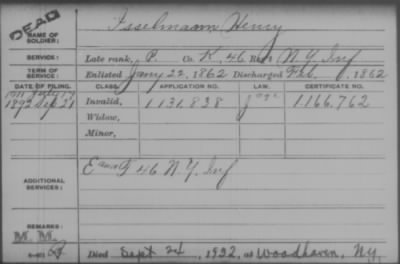 DEAD
NAME OF SOLDIER: Isselmann Henry
SERVICE: Late rank, P. Co. K, 46 Reg't N.Y. Inf
TERM OF SERVICE: Enlisted Jany 22, 1862 Discharged Feb. , 1862
DATE OF FILING. CLASS. APPLICATION NO. LAW. CERTIFICATE NO.
1892 Sep 21 Invalid, 1131.838 1166.762
Widow,
Minor,
ADDITIONAL SERVICES: F 46 N.Y. Inf
REMARKS:
M. M.
Died Sept 24, 1932, at Woodhaven, N.Y.